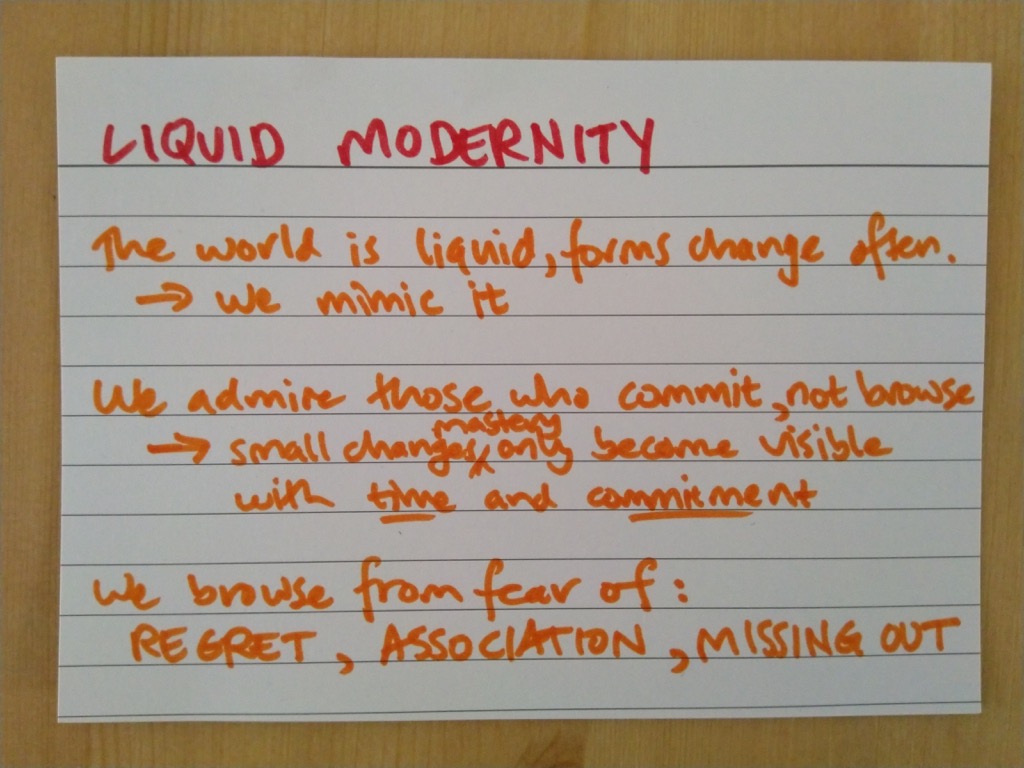 LIQUID MODERNITY
The world is liquid, forms change often.
→ We mimic it
We admire those who commit, not browse
mastery
→ small changes, only become visible
with time and commitment
We browse from fear of:
REGRET, ASSOCIATION, MISSING OUT